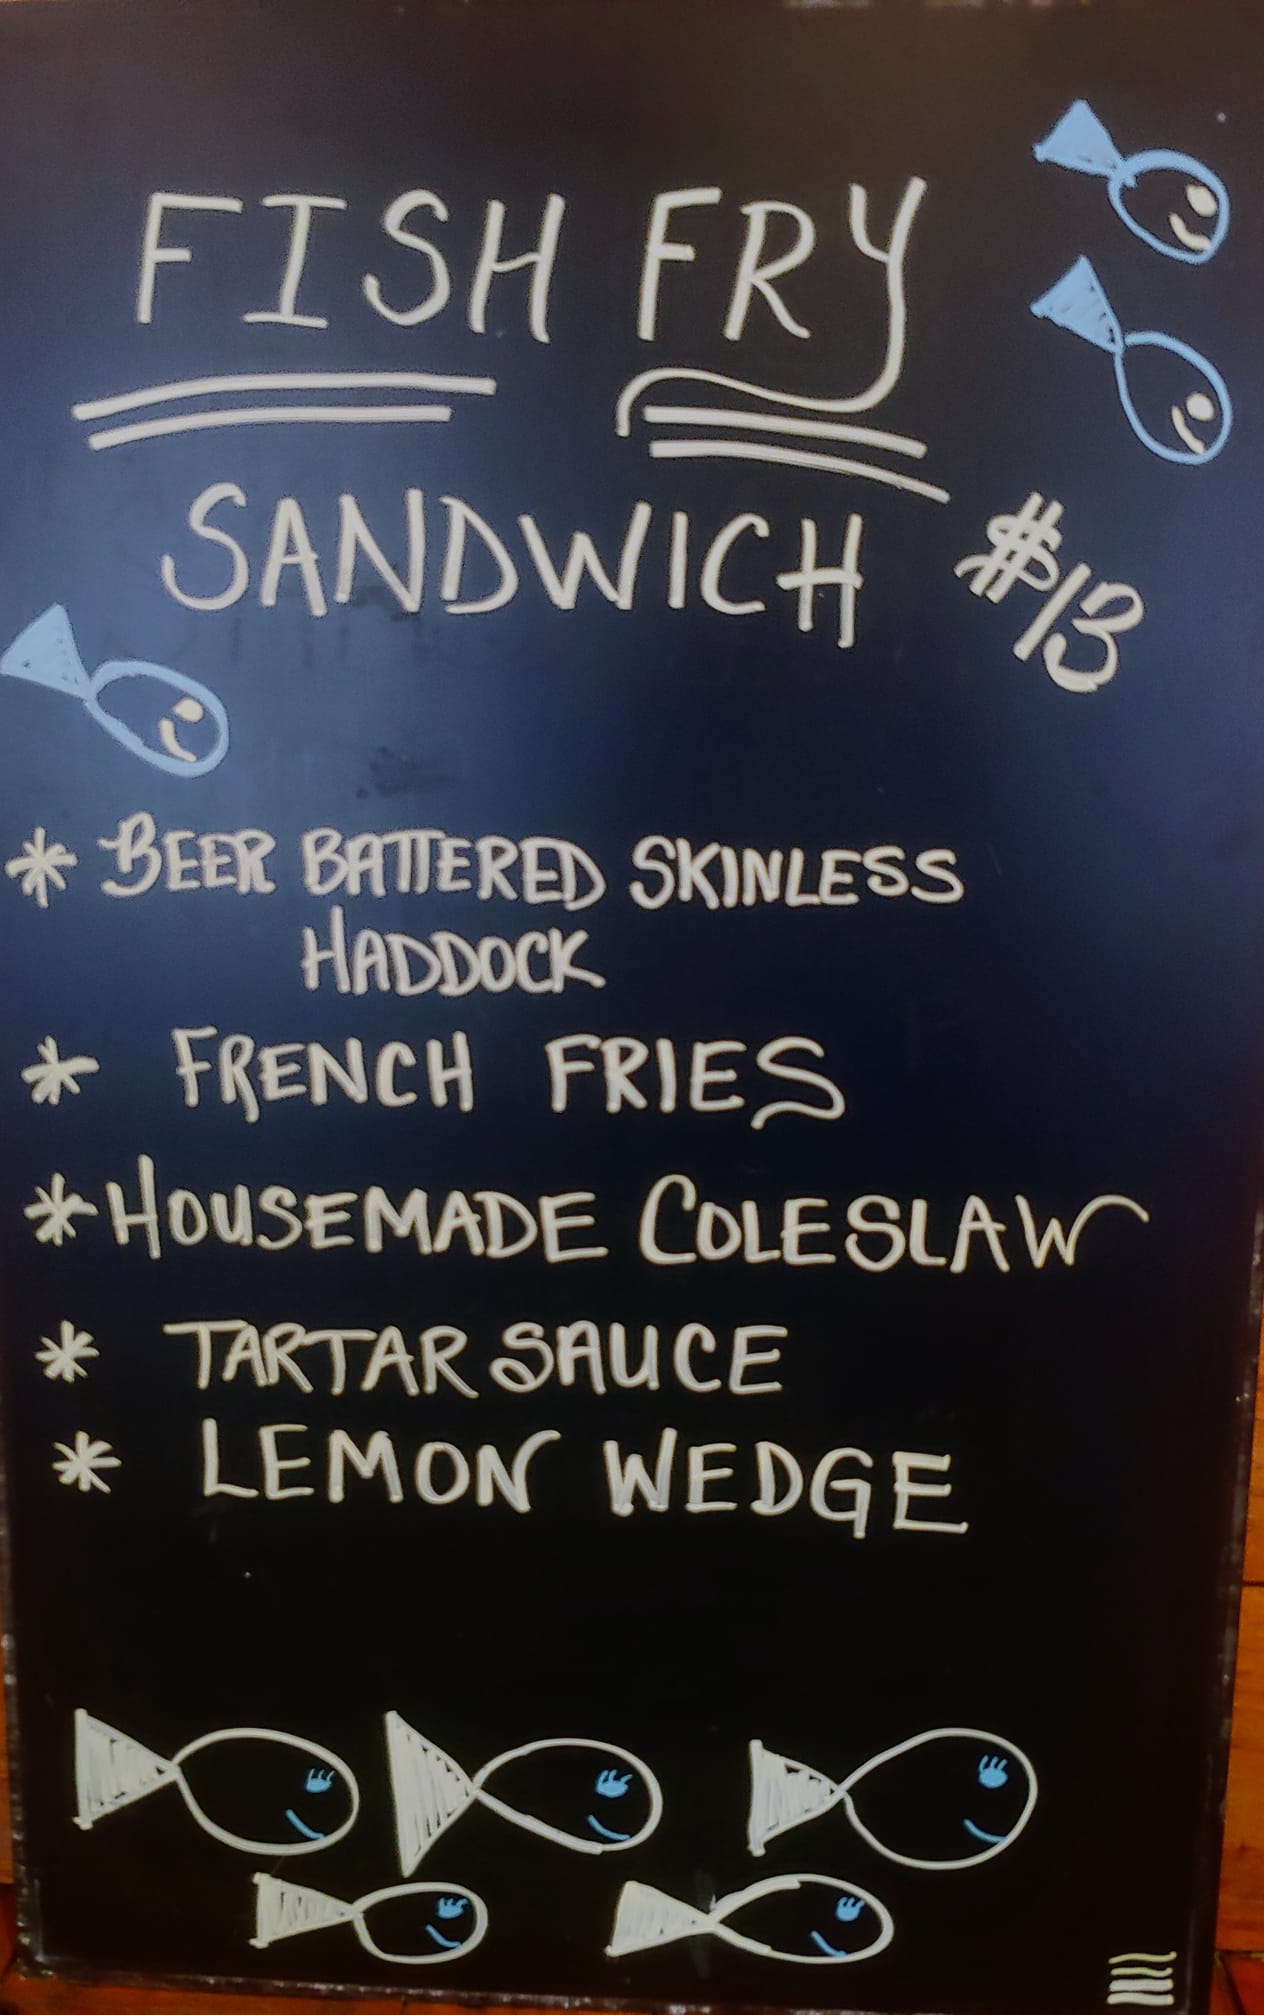 FISH FRY
SANDWICH $13
* BEER BATTERED SKINLESS
HADDOCK
* FRENCH FRIES
* HOUSEMADE COLESLAW
* TARTAR SAUCE
* LEMON WEDGE